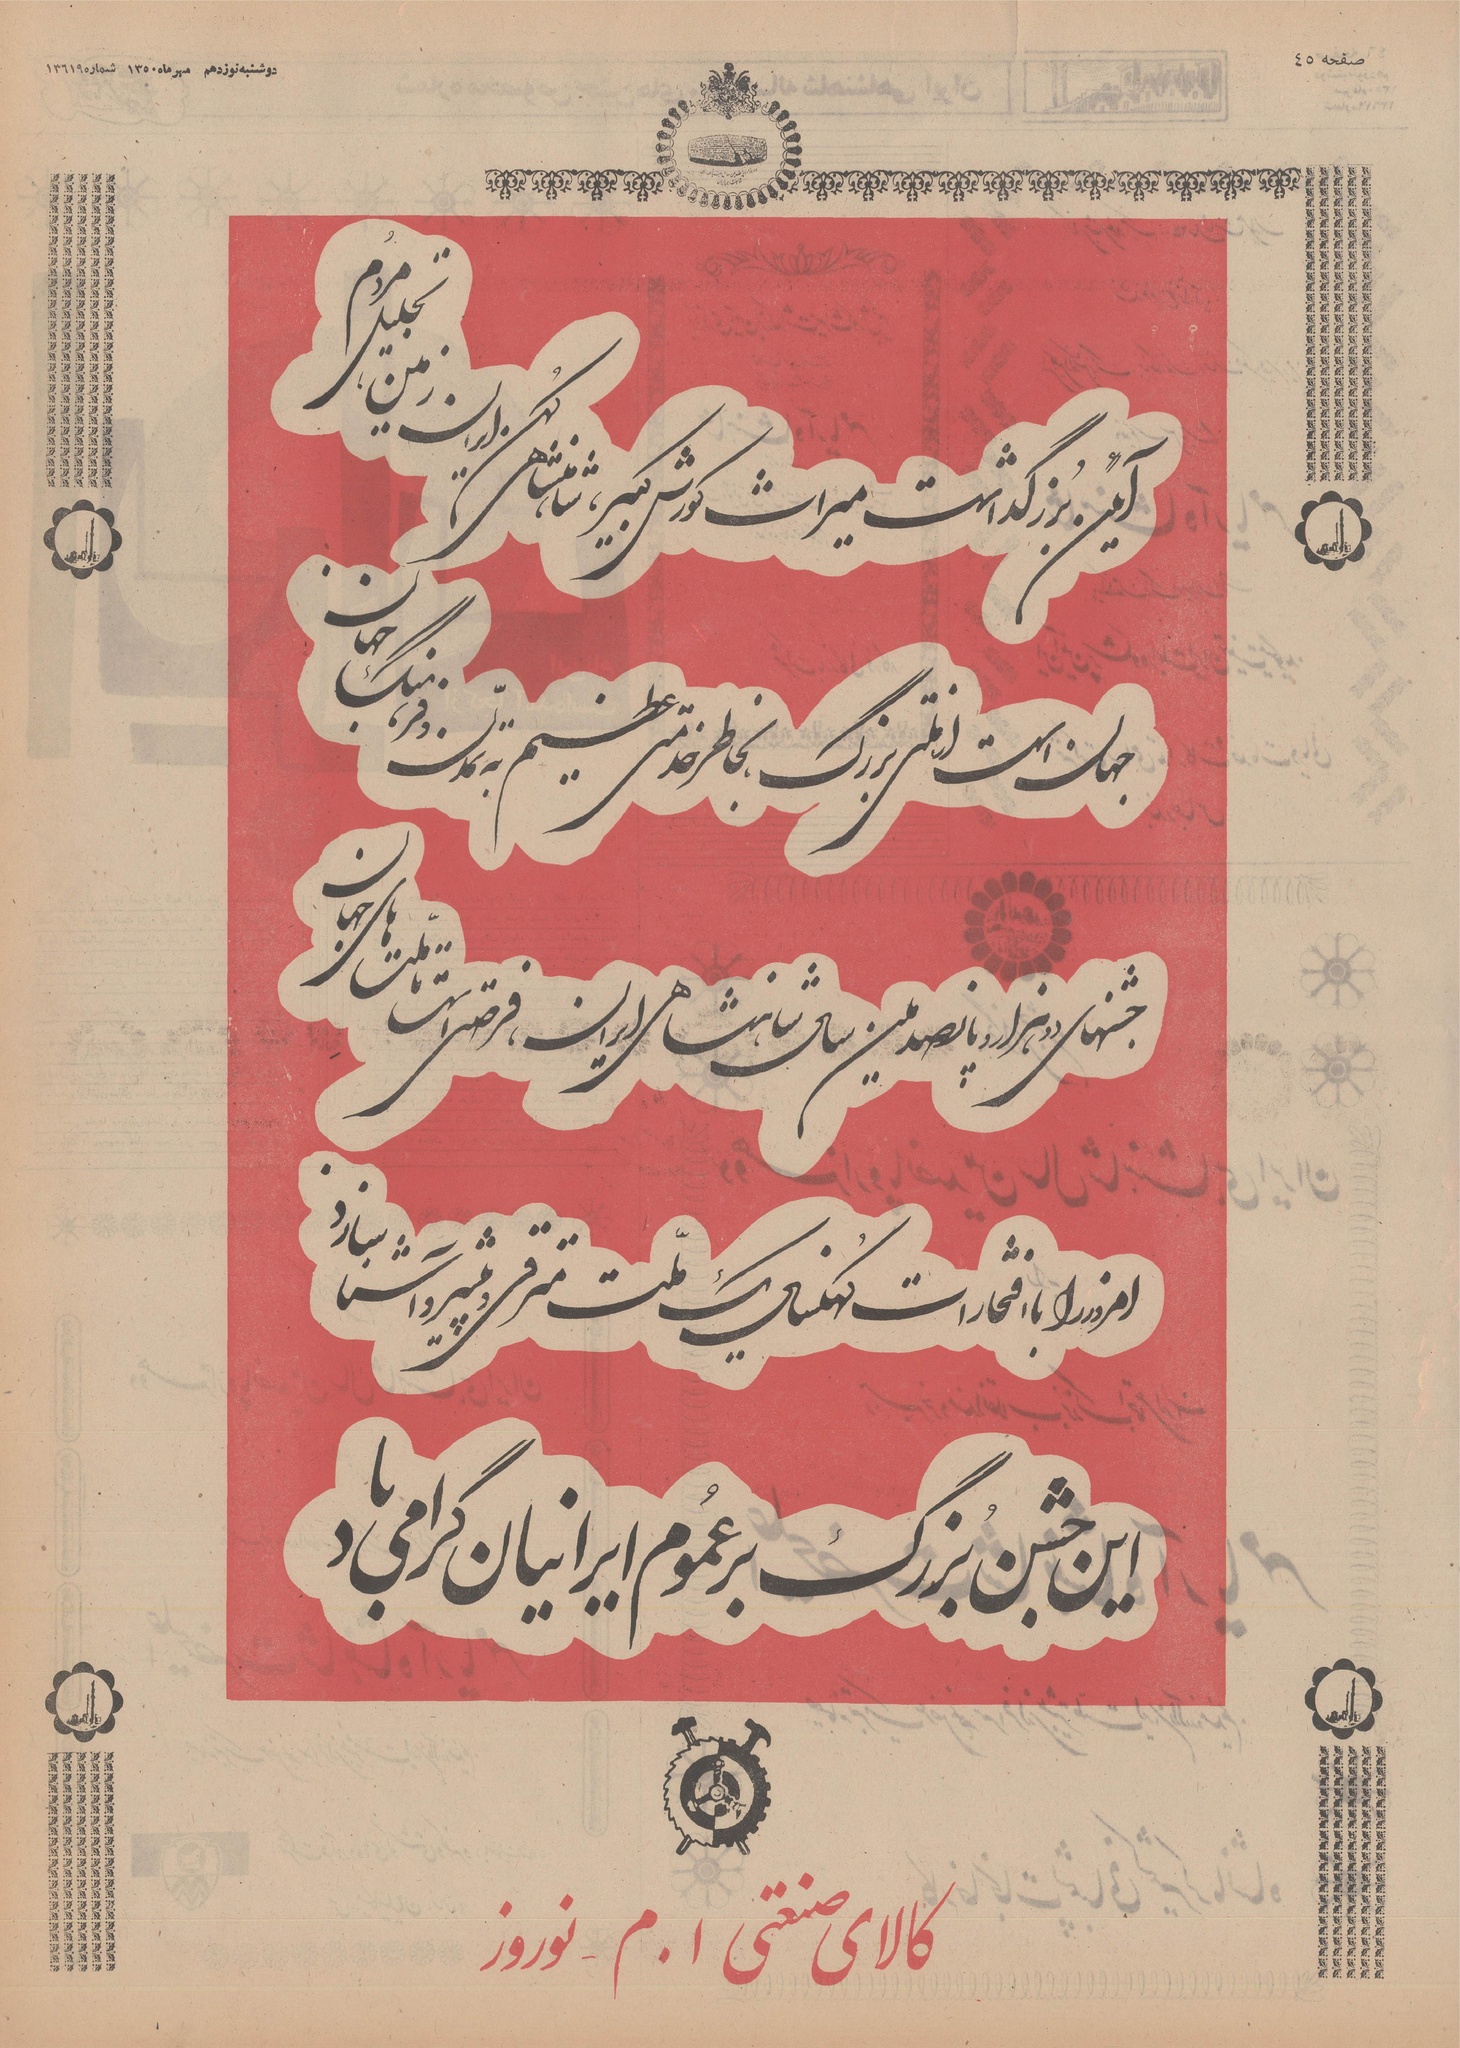 صفحه ٤٥
دوشنبه نوزدهم مهرماه ۱۳۵۰ شماره ۱۳۶۱۹
آئین بزرگداشت میراث کورش کبیر، شاهنشاهی کهن ایران زمین، تجلیل مردم
جهان است از ملتی بزرگ بخاطر خدمتی عظیم به تمدن و فرهنگ جهان
جشنهای دوهزار و پانصدمین سال شاهنشاهی ایران، فرصتی است تا ملت های جهان
امروز را با افتخارات کهنسال یک ملت مترقی و پیشرو آشنا سازد
این جشن بزرگ بر عموم ایرانیان گرامی باد
کالای صنعتی ا . م - نوروز